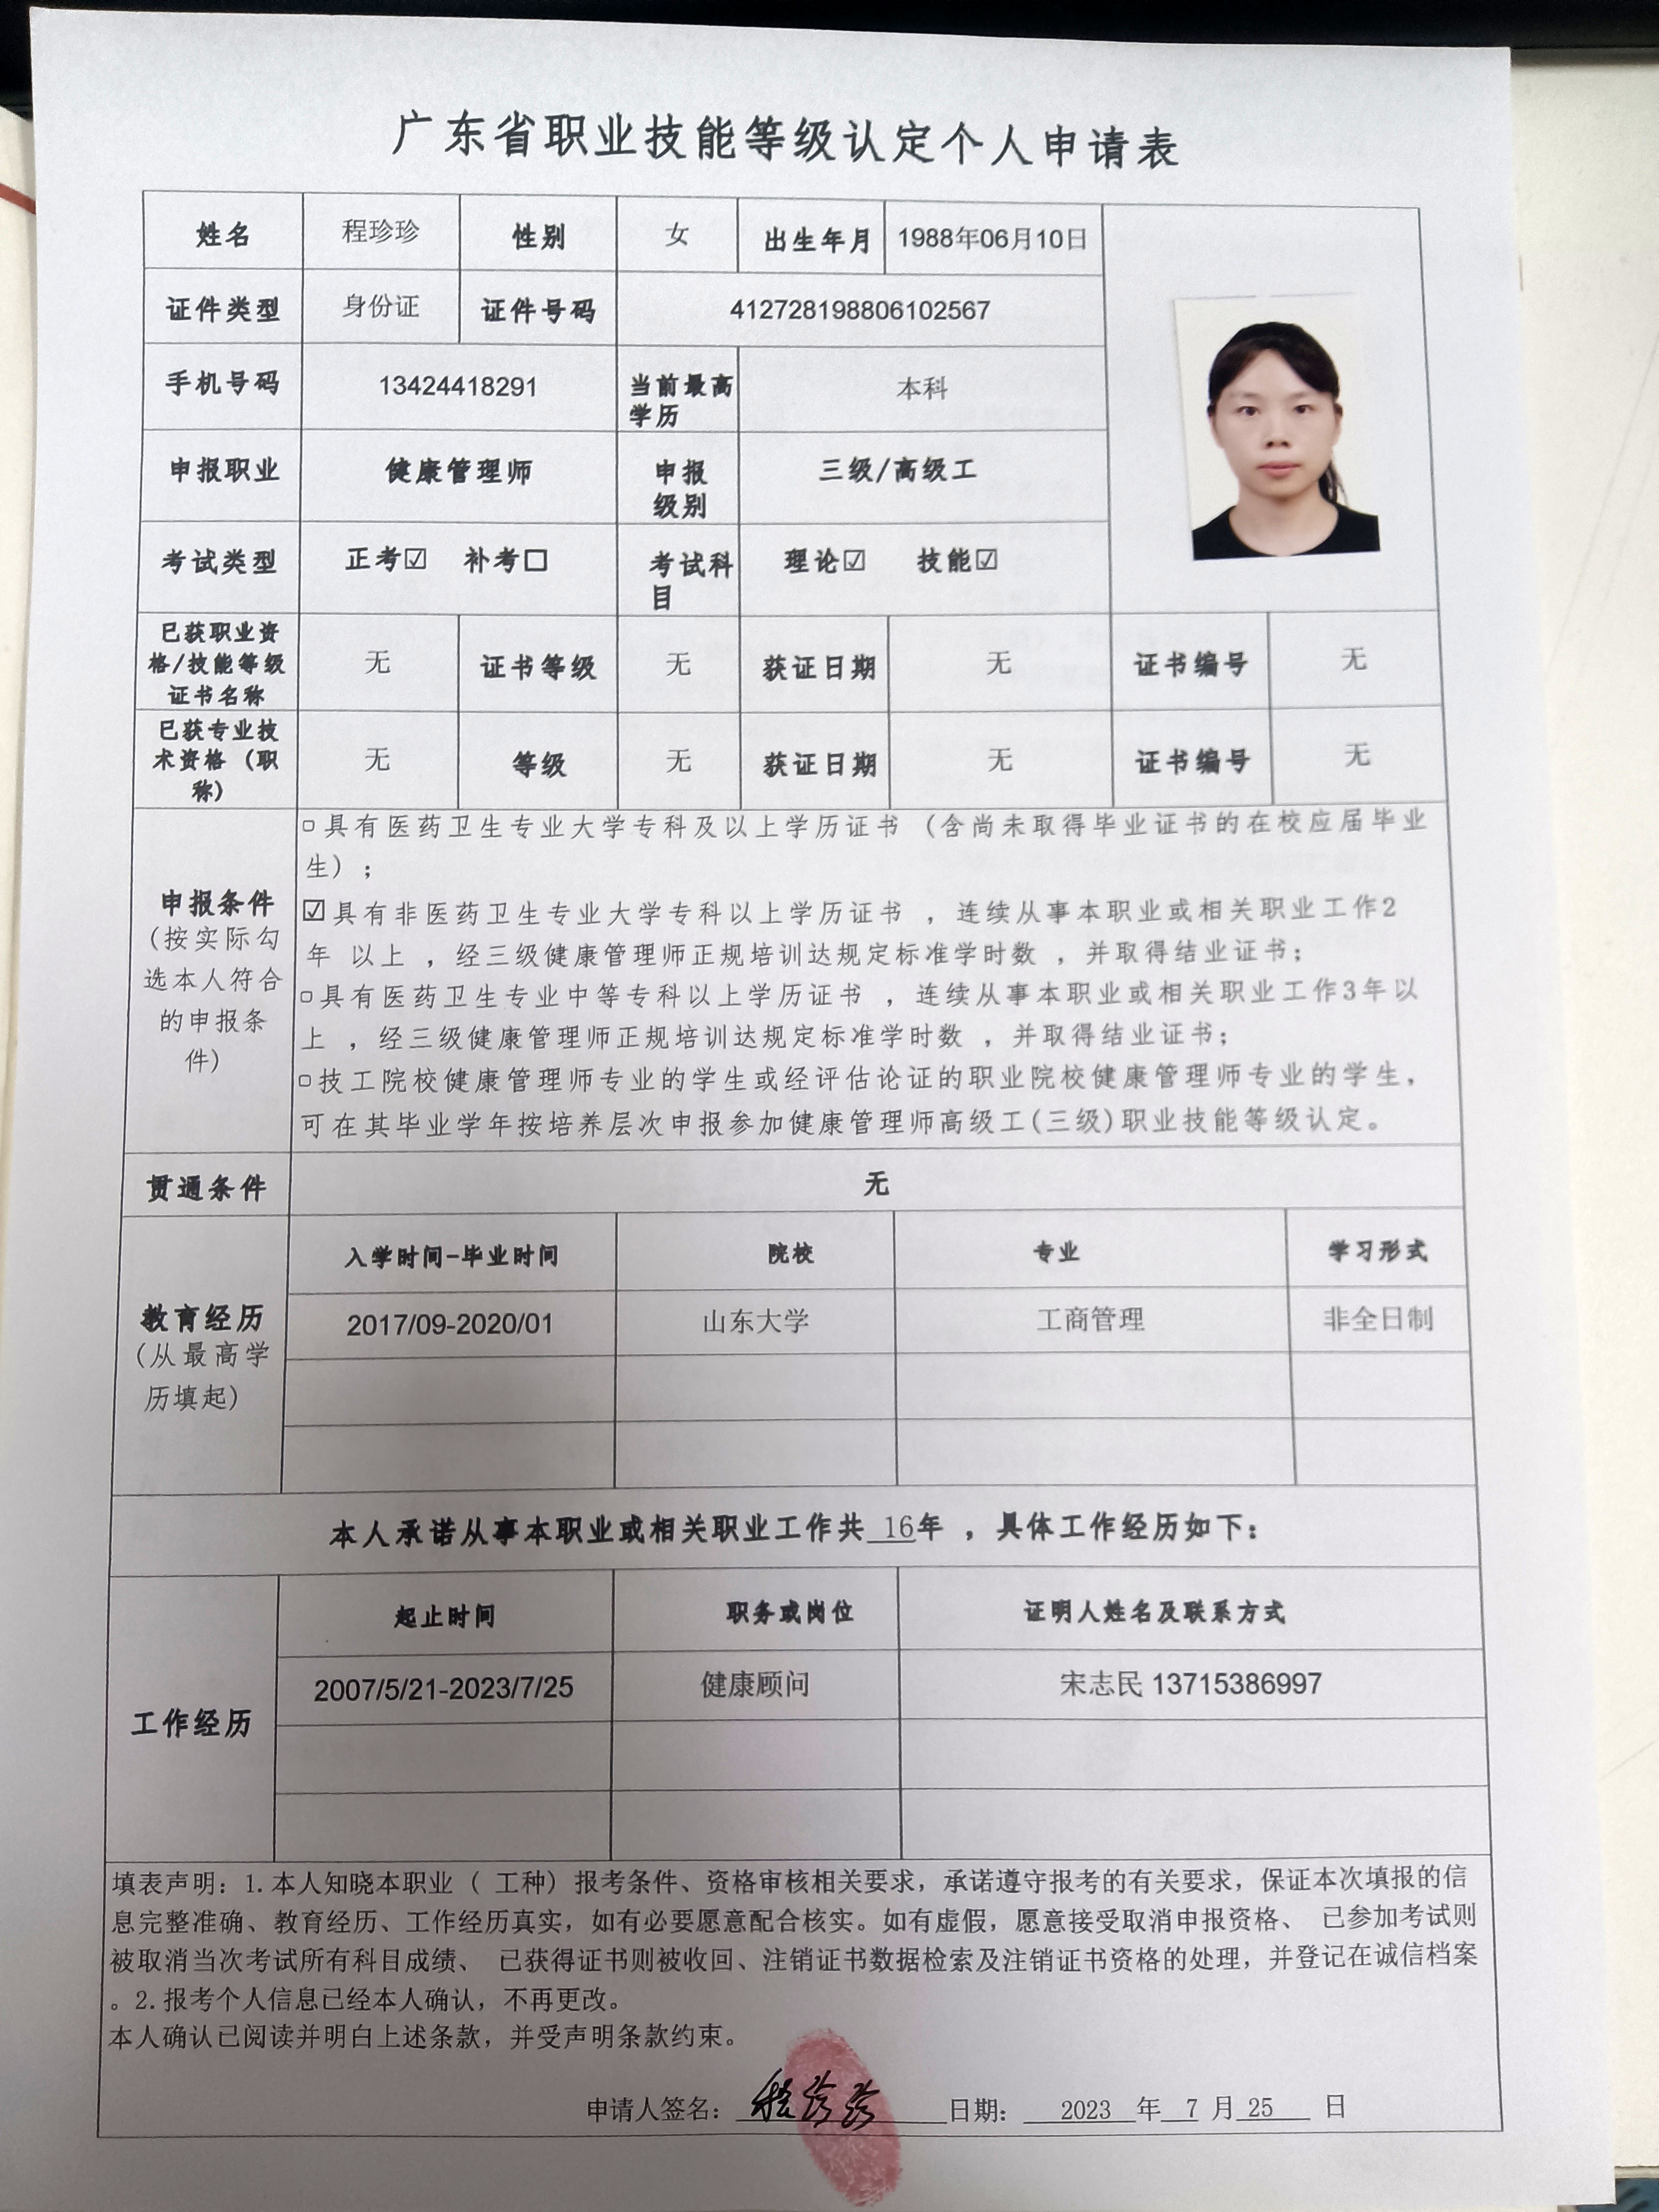 广东省职业技能等级认定个人申请表
姓名 程珍珍 性别 女 出生年月 1988年06月10日
证件类型 身份证 证件号码 412728198806102567
手机号码 13424418291 当前最高
学历 本科
申报职业 健康管理师 申报
级别 三级/高级工
考试类型 正考☑ 补考□ 考试科
目 理论☑ 技能☑
已获职业资
格/技能等级
证书名称 无 证书等级 无 获证日期 无 证书编号 无
已获专业技
术资格（职
称） 无 等级 无 获证日期 无 证书编号 无
申报条件
（按实际勾
选本人符合
的申报条
件）
□具有医药卫生专业大学专科及以上学历证书（含尚未取得毕业证书的在校应届毕业
生）；
☑具有非医药卫生专业大学专科以上学历证书 ，连续从事本职业或相关职业工作2
年 以上 ，经三级健康管理师正规培训达规定标准学时数 ，并取得结业证书；
□具有医药卫生专业中等专科以上学历证书 ，连续从事本职业或相关职业工作3年以
上 ，经三级健康管理师正规培训达规定标准学时数 ，并取得结业证书；
□技工院校健康管理师专业的学生或经评估论证的职业院校健康管理师专业的学生，
可在其毕业学年按培养层次申报参加健康管理师高级工(三级)职业技能等级认定。
贯通条件 无
教育经历
（从最高学
历填起）
入学时间-毕业时间 院校 专业 学习形式
2017/09-2020/01 山东大学 工商管理 非全日制
本人承诺从事本职业或相关职业工作共 16年 ，具体工作经历如下：
工作经历
起止时间 职务或岗位 证明人姓名及联系方式
2007/5/21-2023/7/25 健康顾问 宋志民 13715386997
填表声明：1.本人知晓本职业（ 工种）报考条件、资格审核相关要求，承诺遵守报考的有关要求，保证本次填报的信
息完整准确、教育经历、工作经历真实，如有必要愿意配合核实。如有虚假，愿意接受取消申报资格、 已参加考试则
被取消当次考试所有科目成绩、 已获得证书则被收回、注销证书数据检索及注销证书资格的处理，并登记在诚信档案
。2.报考个人信息已经本人确认，不再更改。
本人确认已阅读并明白上述条款，并受声明条款约束。
申请人签名：程珍珍 日期： 2023 年 7 月 25 日